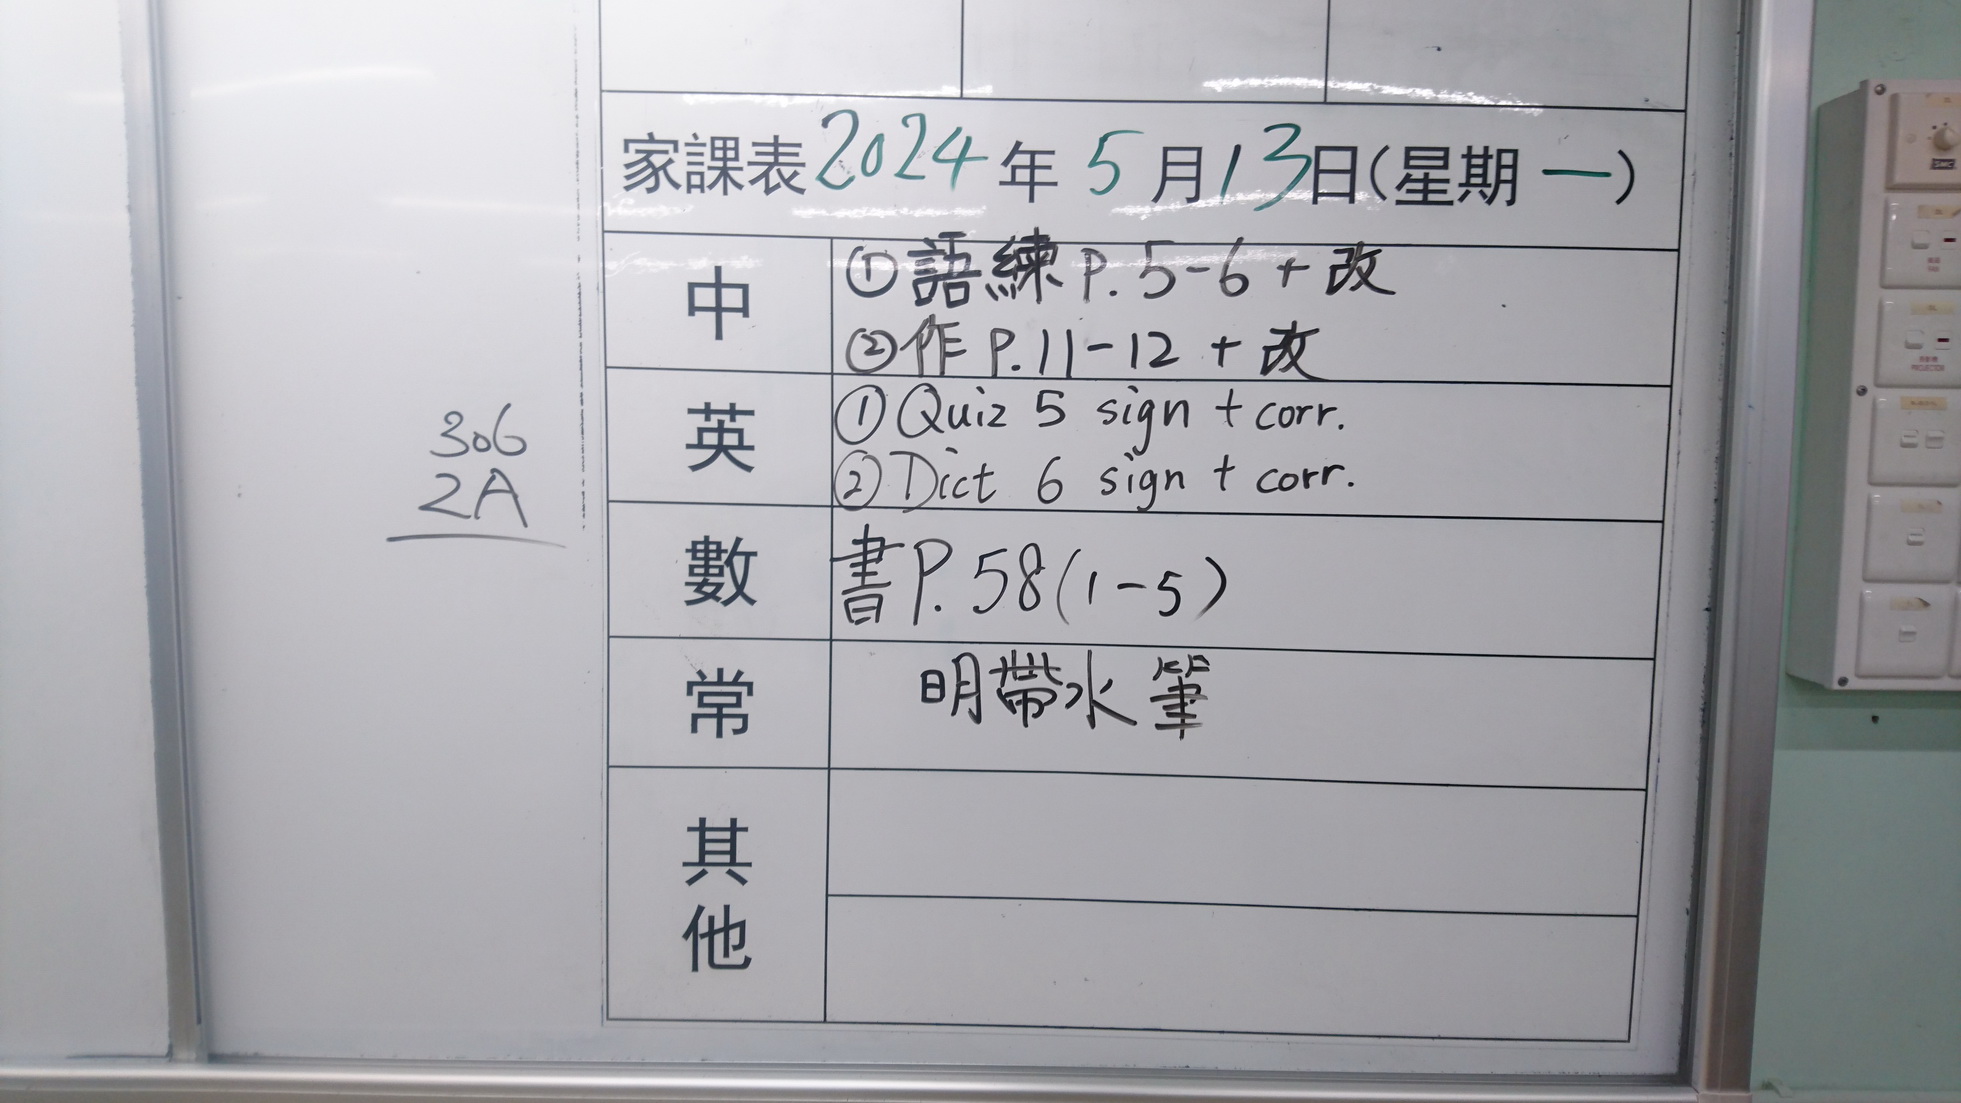 家課表2024年5月13日(星期一)
中
①語練P.5-6+改
②作P.11-12+改
英
①Quiz 5 sign + corr.
②Dict 6 sign + corr.
數
書P.58(1-5)
常
明帶水筆
其他
306
2A
PROJECTOR